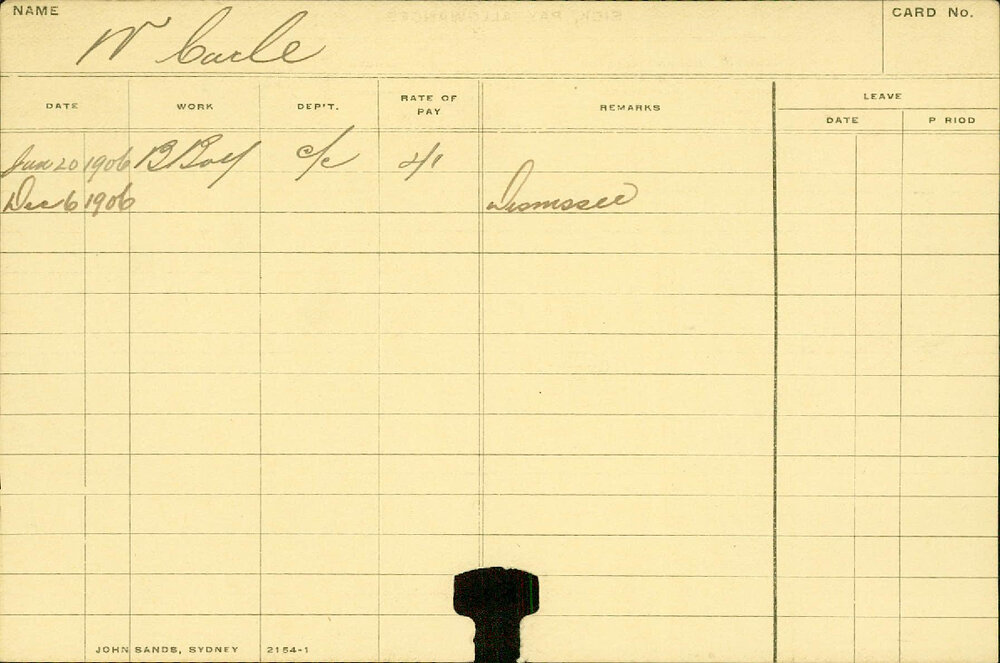 NAME
CARD No.
W Carle
DATE WORK DEP'T. RATE OF PAY REMARKS LEAVE
DATE P RIOD
Jun 20 1906 B Boy c/c 4/1
Dec 6 1906 Dismissed
JOHN SANDS, SYDNEY 2154-1